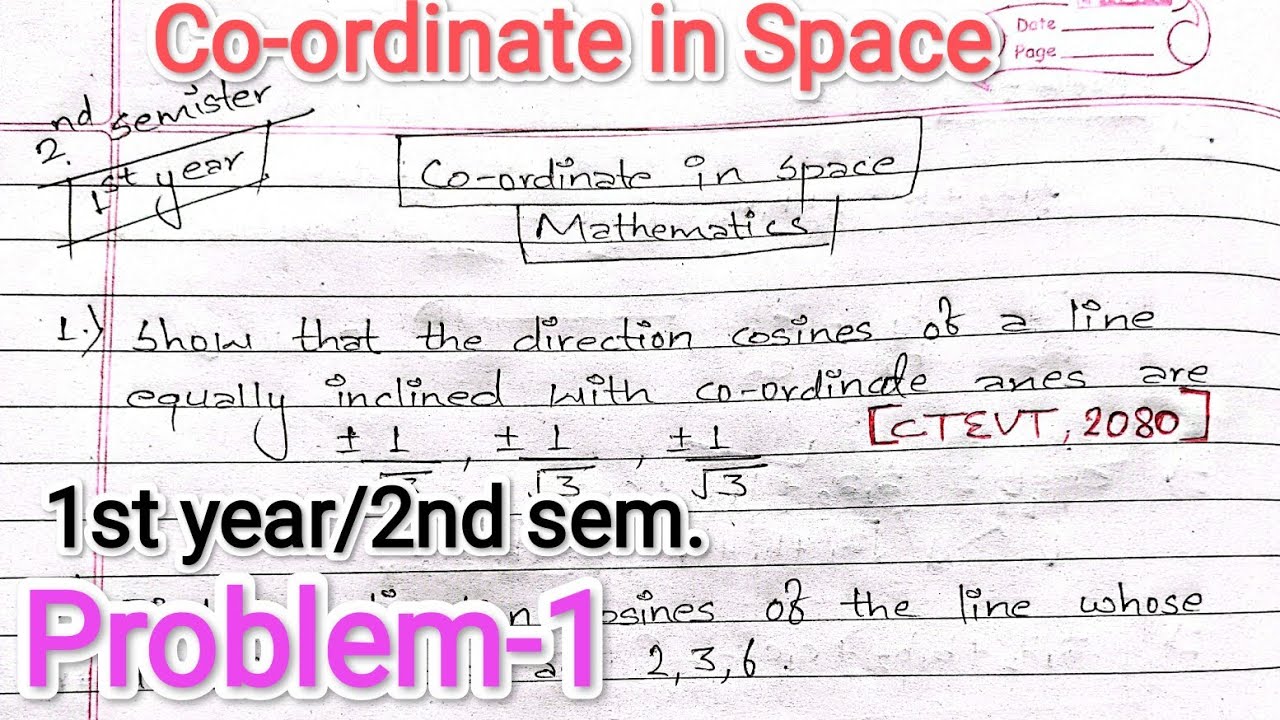 Co-ordinate in Space
Date
Page
2nd semister
1st year
Co-ordinate in space
Mathematics
1.) Show that the direction cosines of a line
equally inclined with co-ordinate axes are
± 1/√3 , ± 1/√3 , ± 1/√3
[CTEVT, 2080]
1st year/2nd sem.
cosines of the line whose
2, 3, 6.
Problem-1